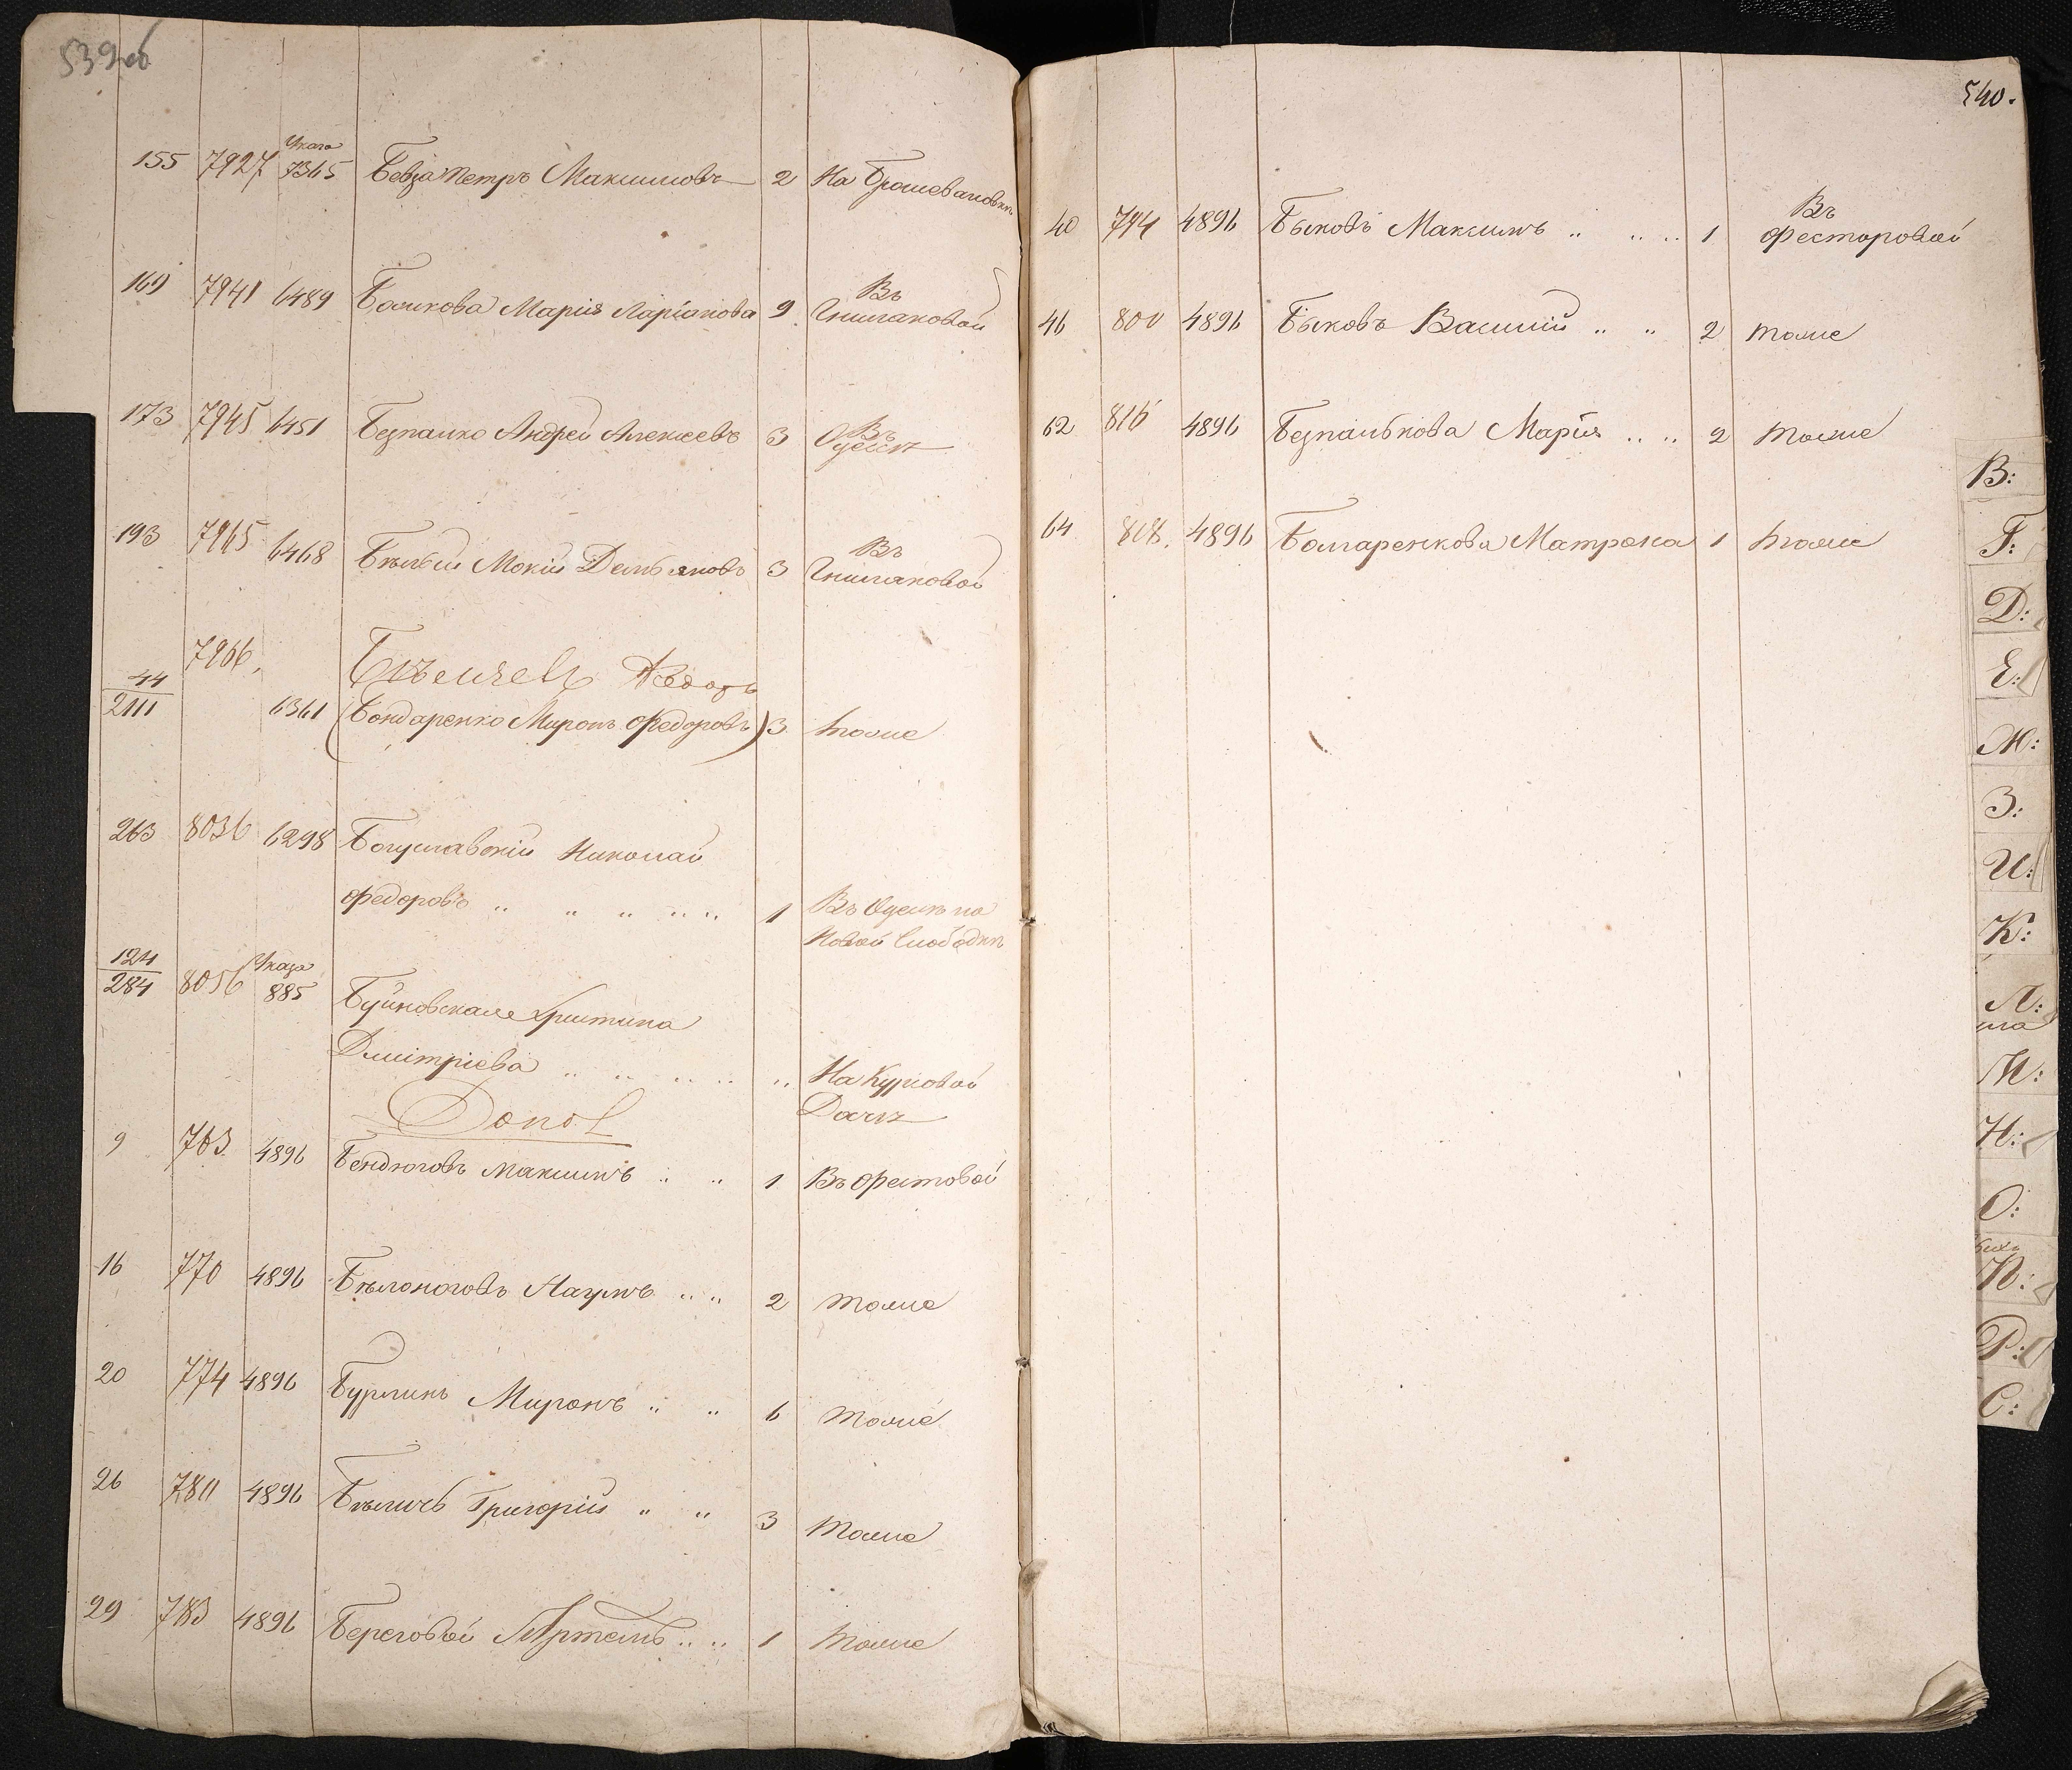 539об
155 7927 Указа 7365 Бевза Петръ Максимовъ 2 На
169 7941 6489 Боликова Марія Ларіонова 9 Въ
Гниляковой
173 7945 6451 Безпалко Андрей Алексеевъ 3 Въ
Одессѣ
193 7965 6468 Бѣлый Мокій Демьяновъ 3 Въ
Гниляковой
7966.
44
2111 6361 (Бондаренко Миронъ Федоровъ) 3 тоже
263 8036 6298 Богуславскій Николай
Федоровъ „ „ „ „ „ 1 Въ Одессѣ на
Новой Слободкѣ
124
284 8056 Указа 885 Буйновская Христина
Дмитріева „ „ „ „ „ На Курсовой
Дачѣ
9 763 4896 Бендюговъ Максимъ „ „ 1 Въ
16 770 4896 Бѣлоноговъ Наумъ „ „ 2 тоже
20 774 4896 Бурлинъ Миронъ „ „ 6 тоже
26 780 4896 Григорій „ „ 3 тоже
29 783 4896 Береговый Артемъ „ „ 1 тоже
540.
40 794 4896 Быковъ Максимъ „ „ „ 1 Въ
Фесторовой
46 800 4896 Быковъ Василій „ „ 2 тоже
62 816 4896 Безпалькова Марія „ „ 2 тоже
64 818. 4896 Бомаренкова Матрона 1 тоже
В:
Г:
Д:
Е:
Ж:
З:
И:
К:
Л:
М:
Н:
О:
П:
Р:
С: